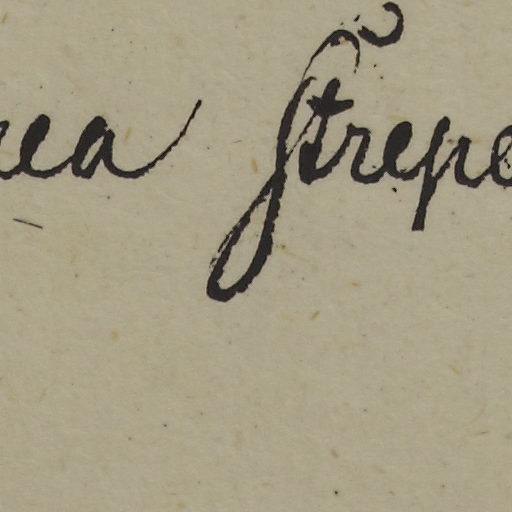 nea Strepe